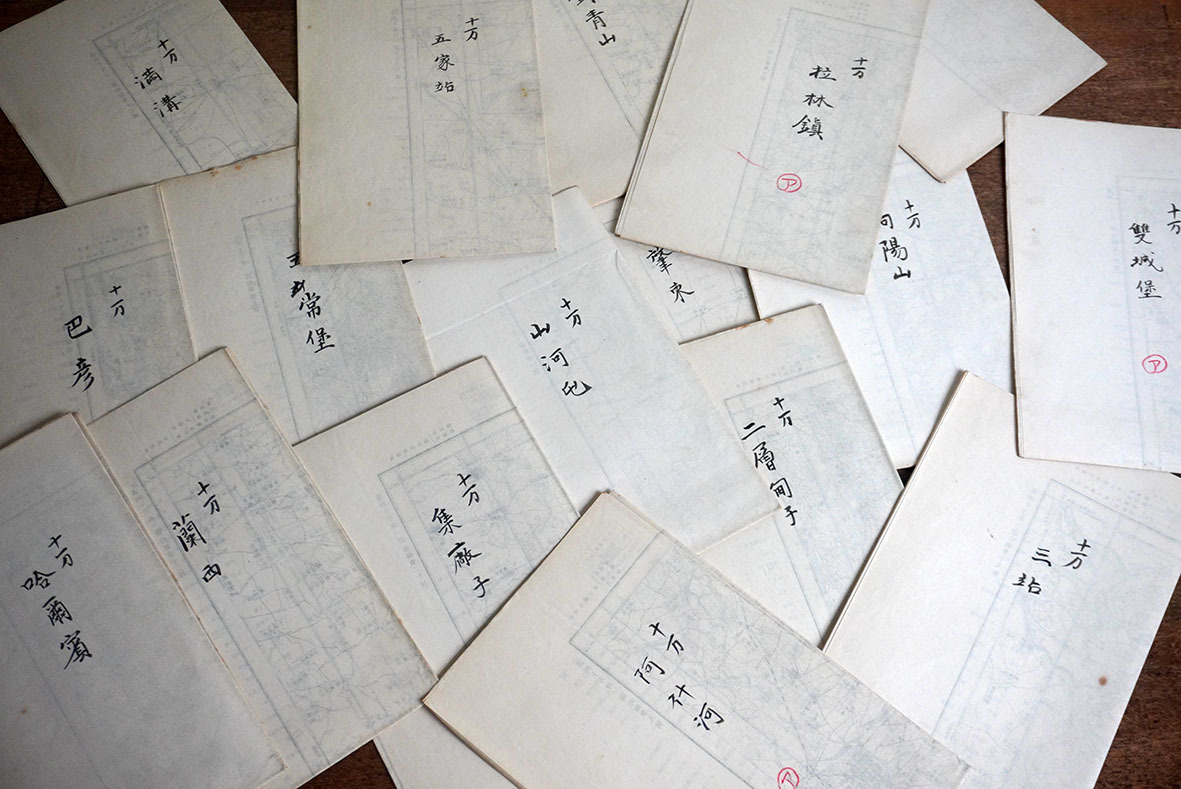 十万
満溝
十万
五家站
青山
十万
拉林鎮
ア
十万
向陽山
十万
雙城堡
ア
十万
巴彦
五常堡
十万
山河屯
肇東
十万
二層甸子
十万
哈爾賓
十万
蘭西
十万
集廠子
十万
阿什河
ア
十万
三站